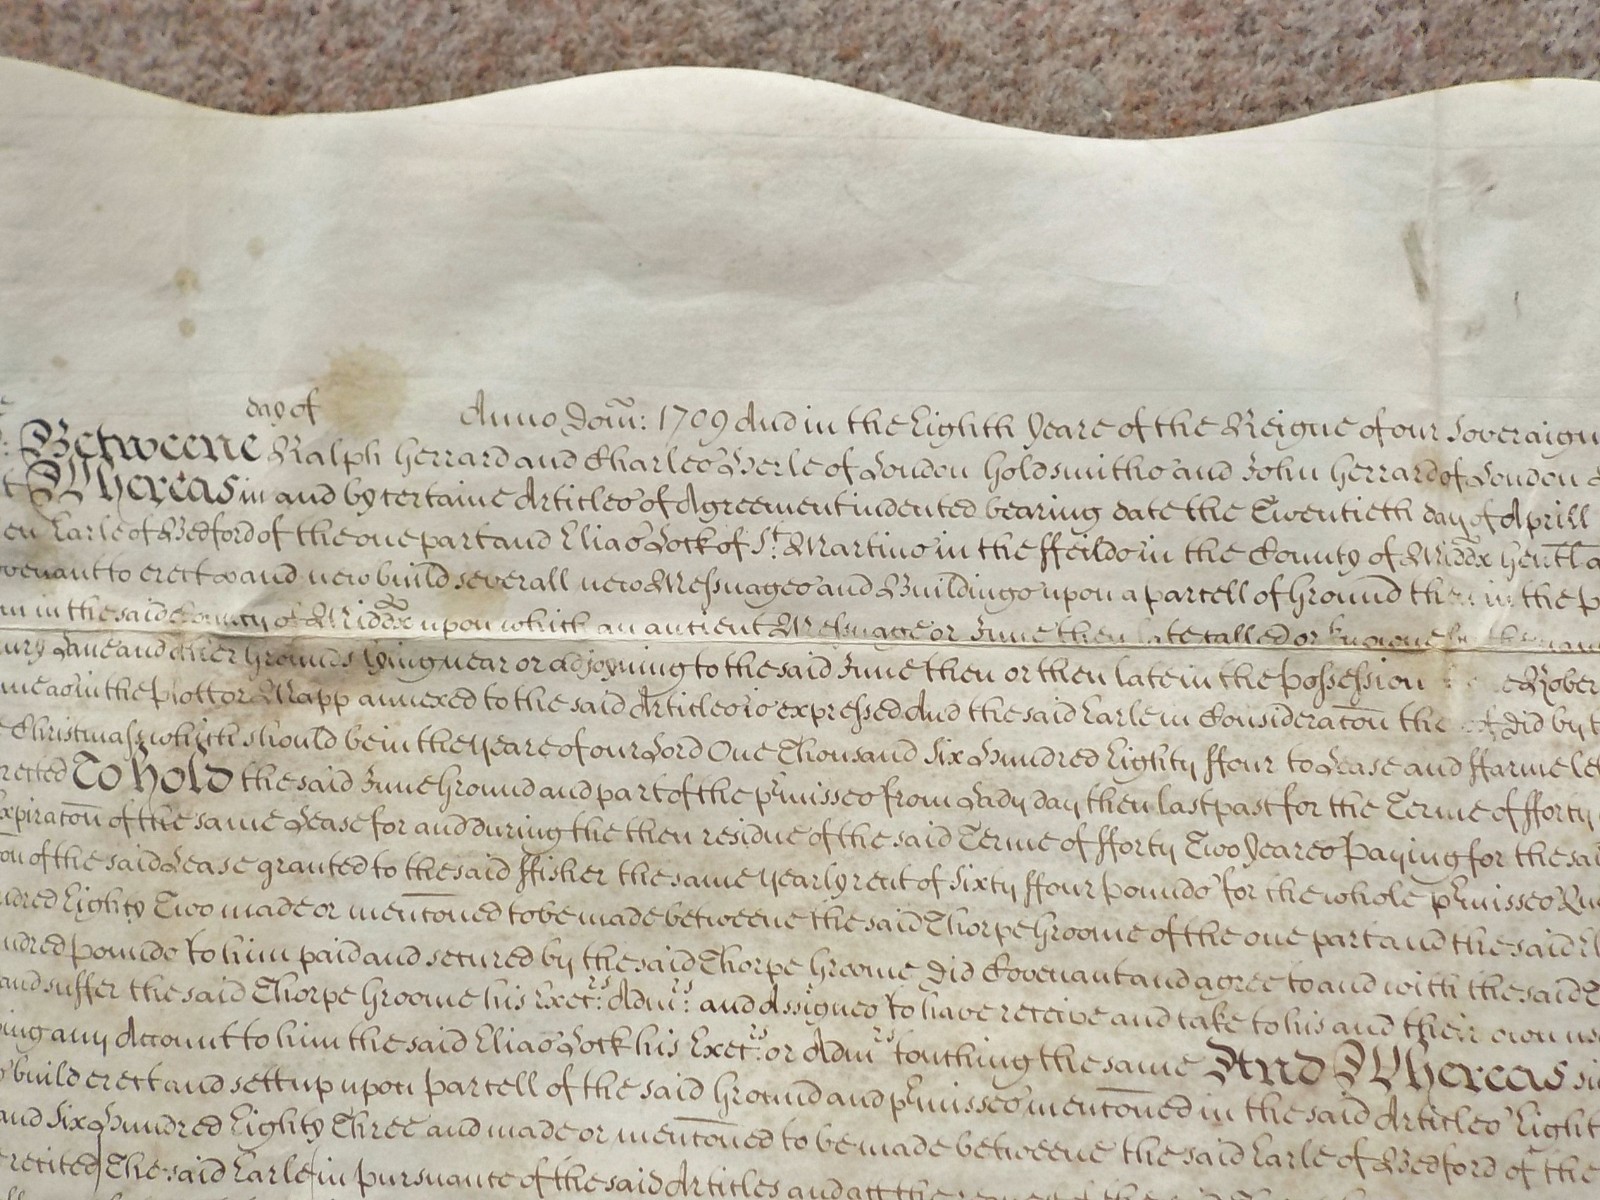 day of Anno Dom: 1709 And in the Eighth Yeare of the Reigne of our Soveraign
Betweene Ralph Gerrard and Charles Herle of London Goldsmiths and John Gerrard of London
Whereas in and by certaine Articles of Agreement indented bearing date the Twentieth day of Aprill
Earle of Bedford of the one part and Elias Lock of St. Martins in the ffeilds in the County of Middx Gentl
to erect and new build severall new Messuages and Buildings upon a parcell of Ground then in the
in the said County of Middx upon which an antient Messuage or Inne then late called or knowne
Lane and other Grounds lying near or adjoyning to the said Inne then or then late in the possession
in the Plott or Mapp annexed to the said Articles is expressed And the said Earle in Consideracon did by
Christmas which should be in the yeare of our Lord One Thousand Six Hundred Eighty ffour to Lease and ffarme
To Hold the said Inne Ground and part of the p'misses from Lady day then last past for the Terme of fforty
of the same Lease for and during the then residue of the said Terme of fforty Two Yeares Paying for the
of the said Lease granted to the said ffisher the same yearly rent of Sixty ffour pounds for the whole p'misses
Eighty Two made or mencóned to be made betweene the said Thorpe Groome of the one part and the said
pounds to him paid and secured by the said Thorpe Groome did Covenant and agree to and with the said
and suffer the said Thorpe Groome his Execrs: Admrs: and Assignes to have receive and take to his and their own
any Account to him the said Elias Lock his Execrs: or Admrs touching the same And Whereas
build erect and sett up upon parcell of the said Ground and p'misses mencóned in the said Articles
and Six Hundred Eighty Three and made or mencóned to be made betweene the said Earle of Bedford of the
recited The said Earle in pursuance of the said Articles and att the